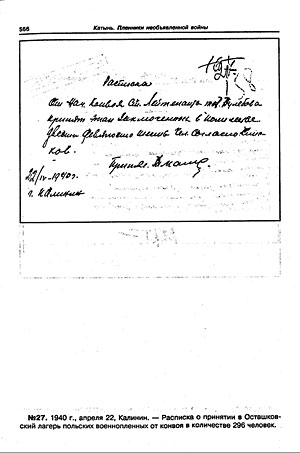 566
Катынь. Пленники необъявленной войны
Расписка
От нач. конвоя Ст. Лейтенанта тов.
принят этап заключенных в количестве
Двести девяносто шесть чел. согласно списков.
Принял
22/IV-1940 г.
г. Калинин
№27. 1940 г., апреля 22, Калинин. — Расписка о принятии в Осташков-
ский лагерь польских военнопленных от конвоя в количестве 296 человек.